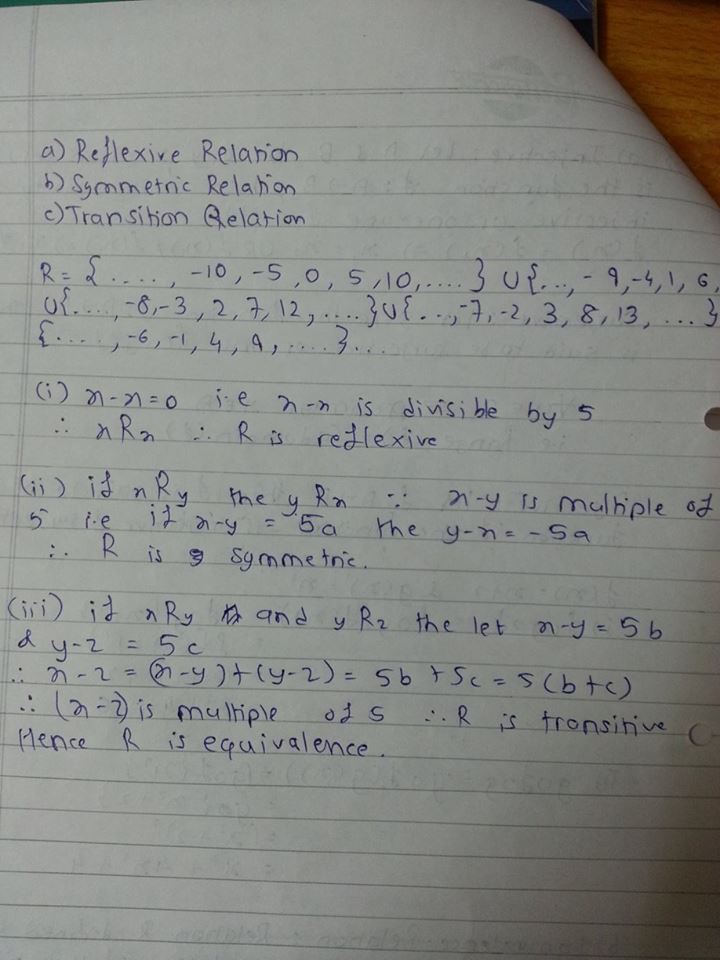 a) Reflexive Relation
b) Symmetric Relation
c) Transition Relation
R = { ...., -10, -5, 0, 5, 10, .... } U {..., -9, -4, 1, 6,
U{...., -8, -3, 2, 7, 12, ....} U {..., -7, -2, 3, 8, 13, ...}
{...., -6, -1, 4, 9, ....}...
(i) x-x=0 i.e x-x is divisible by 5
∴ xRx ∴ R is reflexive
(ii) if xRy the yRx ∵ x-y is multiple of
5 i.e if x-y = 5a the y-x = -5a
∴ R is symmetric.
(iii) if xRy and yRz the let x-y = 5b
& y-z = 5c
∴ x-z = (x-y)+(y-z) = 5b+5c = 5(b+c)
∴ (x-z) is multiple of 5 ∴ R is transitive
Hence R is equivalence.